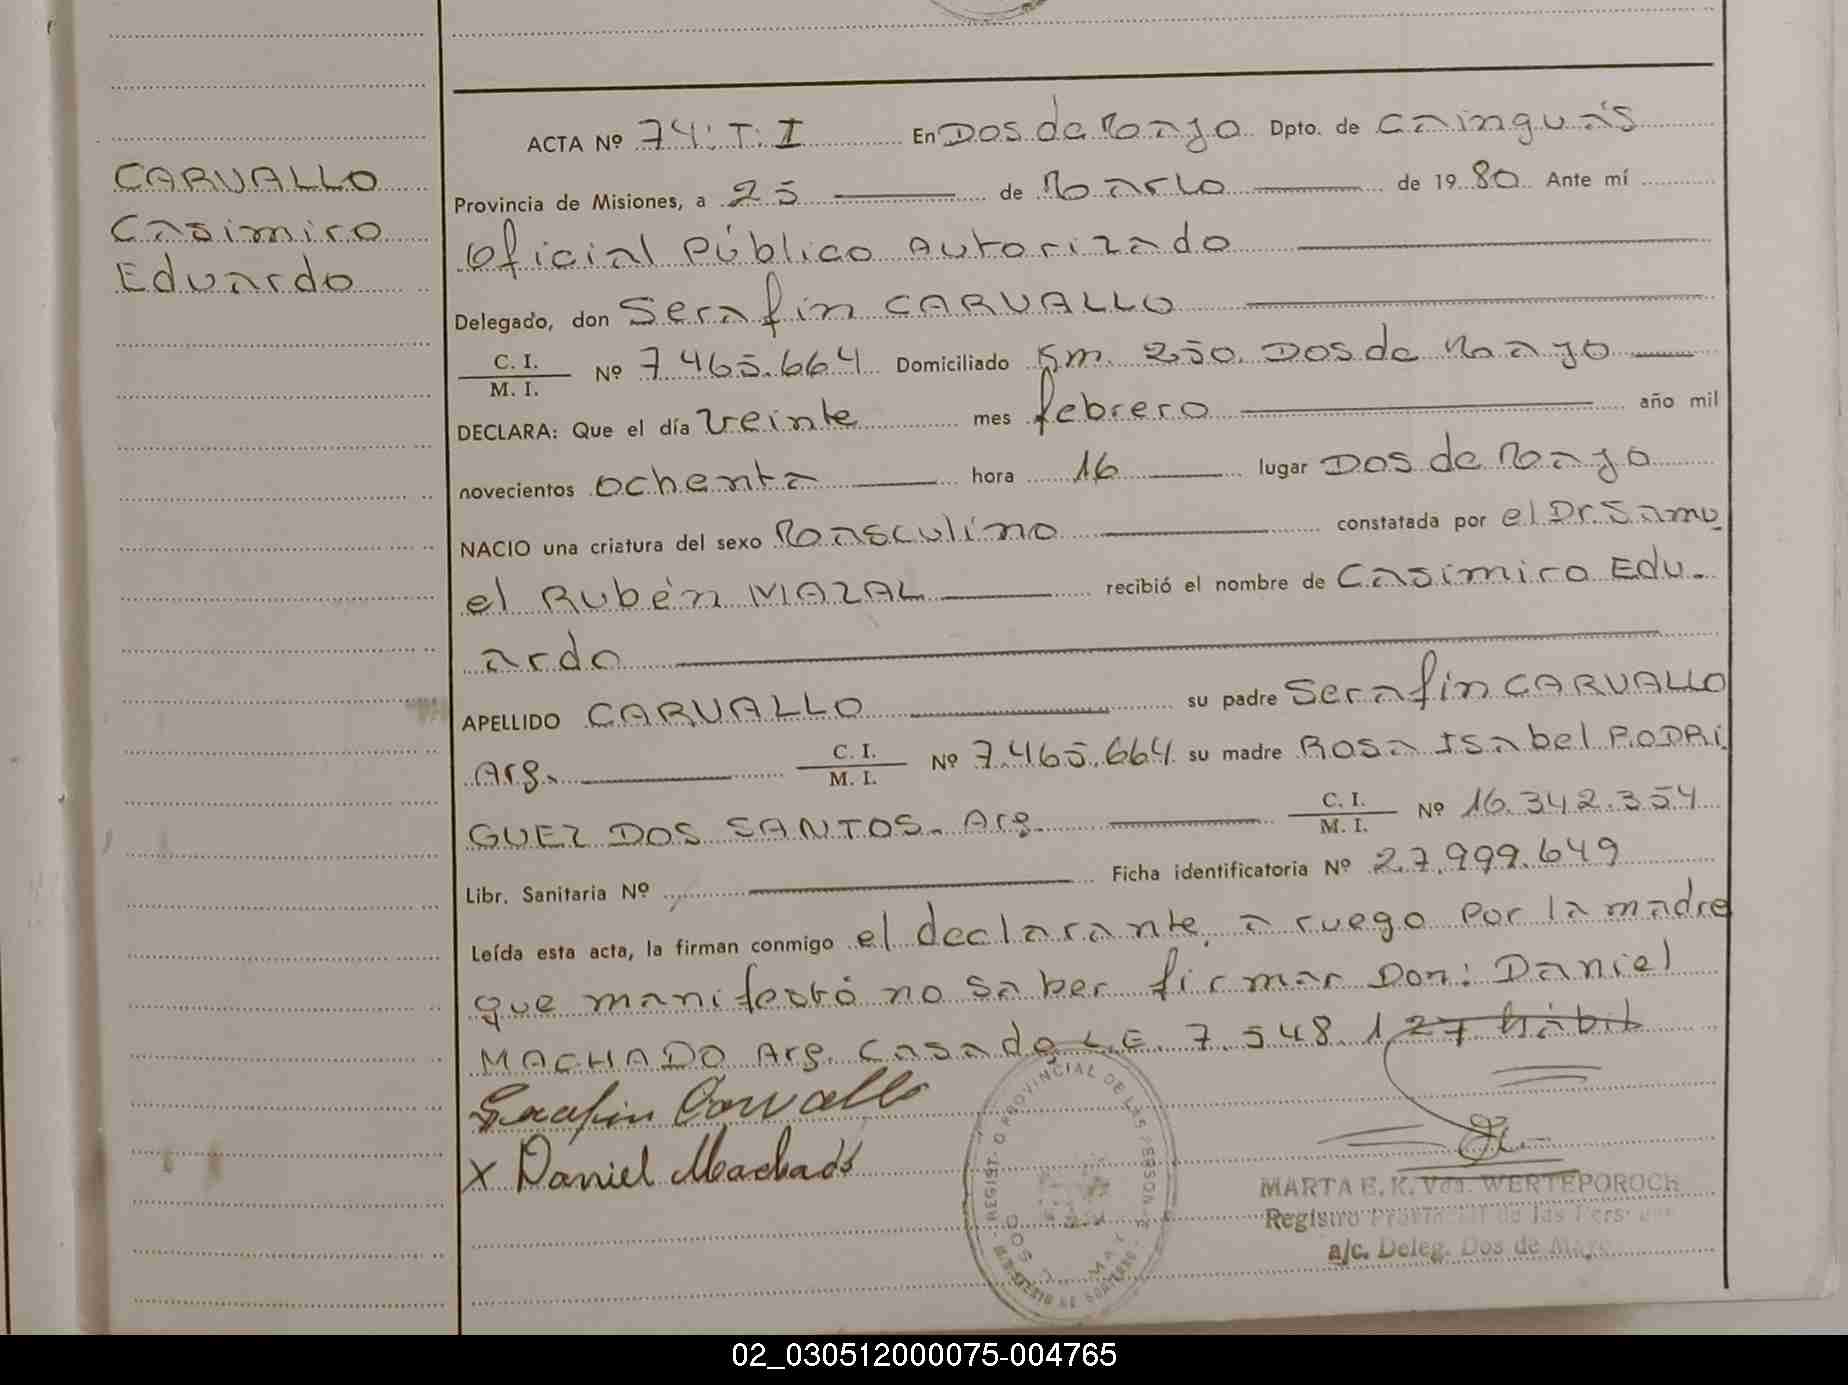 CARVALLO
Casimiro
Eduardo
ACTA Nº 74: T: I En Dos de Mayo Dpto. de Cainguás
Provincia de Misiones, a 25 de Marzo de 1980 Ante mí
Oficial Público Autorizado
Delegado, don Serafin CARVALLO
C. I. / M. I. Nº 7.465.664 Domiciliado Km. 250. Dos de Mayo
DECLARA: Que el día Veinte mes febrero año mil
novecientos ochenta hora 16 lugar Dos de Mayo
NACIO una criatura del sexo Masculino constatada por el Dr. Samu
el Rubén MAZAL recibió el nombre de Casimiro Edu-
ardo
APELLIDO CARVALLO su padre Serafin CARVALLO
Arg. C. I. / M. I. Nº 7.465.664 su madre Rosa Isabel RODRI
GUEZ DOS SANTOS. Arg. C. I. / M. I. Nº 16.342.354
Libr. Sanitaria Nº Ficha identificatoria Nº 27.999.649
Leída esta acta, la firman conmigo el declarante, a ruego por la madre
que manifestó no saber firmar Don: Daniel
MACHADO Arg. Casado L.E. 7.548.127 hábil
Serafin Carvallo
X Daniel Machado
MARTA E. K. Vda. WERTEPOROCH
Registro Provincial de las Pers
a/c. Deleg. Dos de Mayo
PROVINCIAL DE LAS PERSONAS
MINISTERIO DE GOBIERNO
02_030512000075-004765